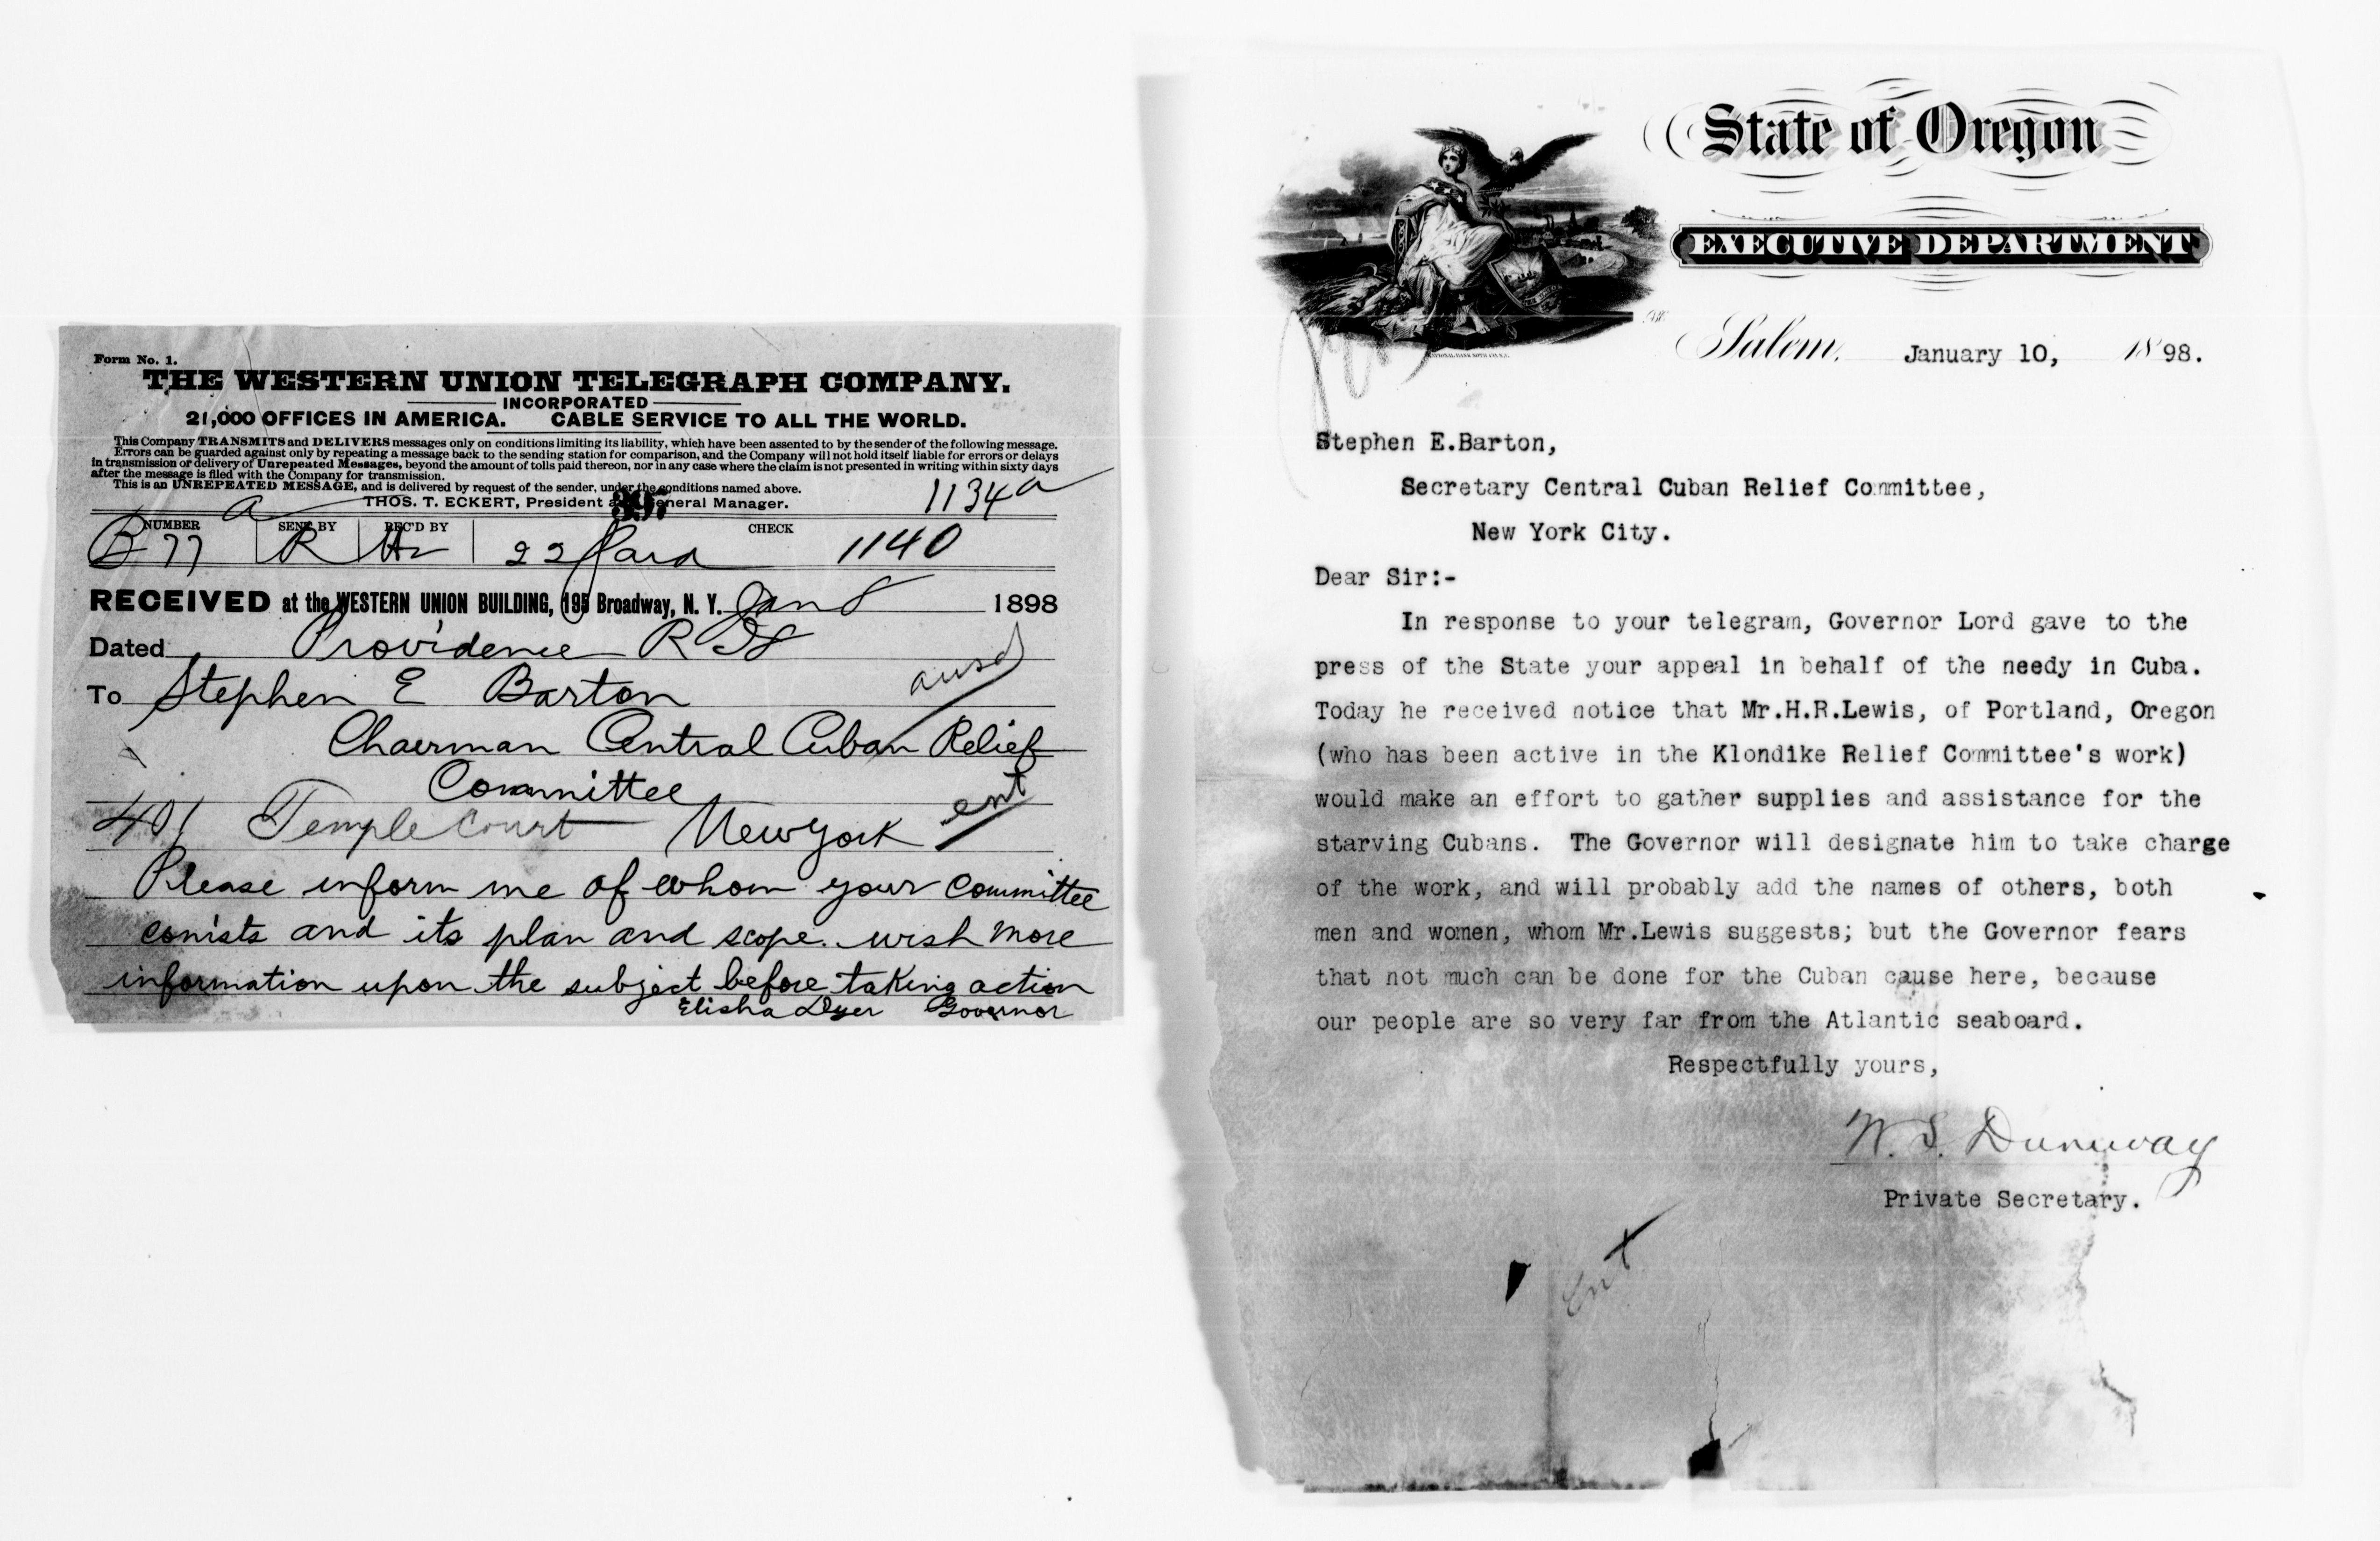 Form No. 1.
THE WESTERN UNION TELEGRAPH COMPANY.
INCORPORATED
21,000 OFFICES IN AMERICA. CABLE SERVICE TO ALL THE WORLD.
This Company TRANSMITS and DELIVERS messages only on conditions limiting its liability, which have been assented to by the sender of the following message.
Errors can be guarded against only by repeating a message back to the sending station for comparison, and the Company will not hold itself liable for errors or delays
in transmission or delivery of Unrepeated Messages, beyond the amount of tolls paid thereon, nor in any case where the claim is not presented in writing within sixty days
after the message is filed with the Company for transmission.
This is an UNREPEATED MESSAGE, and is delivered by request of the sender, under the conditions named above.
THOS. T. ECKERT, President and General Manager.
1134a
NUMBER SENT BY REC'D BY CHECK
B 77 R 22 Paid 1140
RECEIVED at the WESTERN UNION BUILDING, 195 Broadway, N. Y. Jan 8 1898
Dated Providence R I 8
To Stephen E Barton
Chaerman Central Cuban Relief
Committee
401 Temple Court New York
ansd
ent
Please inform me of whom your committee
consists and its plan and scope. wish more
information upon the subject before taking action
Elisha Dyer Governor
State of Oregon
EXECUTIVE DEPARTMENT
Salem, January 10, 1898.
Stephen E.Barton,
Secretary Central Cuban Relief Committee,
New York City.
Dear Sir:-
In response to your telegram, Governor Lord gave to the
press of the State your appeal in behalf of the needy in Cuba.
Today he received notice that Mr.H.R.Lewis, of Portland, Oregon
(who has been active in the Klondike Relief Committee's work)
would make an effort to gather supplies and assistance for the
starving Cubans. The Governor will designate him to take charge
of the work, and will probably add the names of others, both
men and women, whom Mr.Lewis suggests; but the Governor fears
that not much can be done for the Cuban cause here, because
our people are so very far from the Atlantic seaboard.
Respectfully yours,
W. S. Duniway
Private Secretary.
Ent